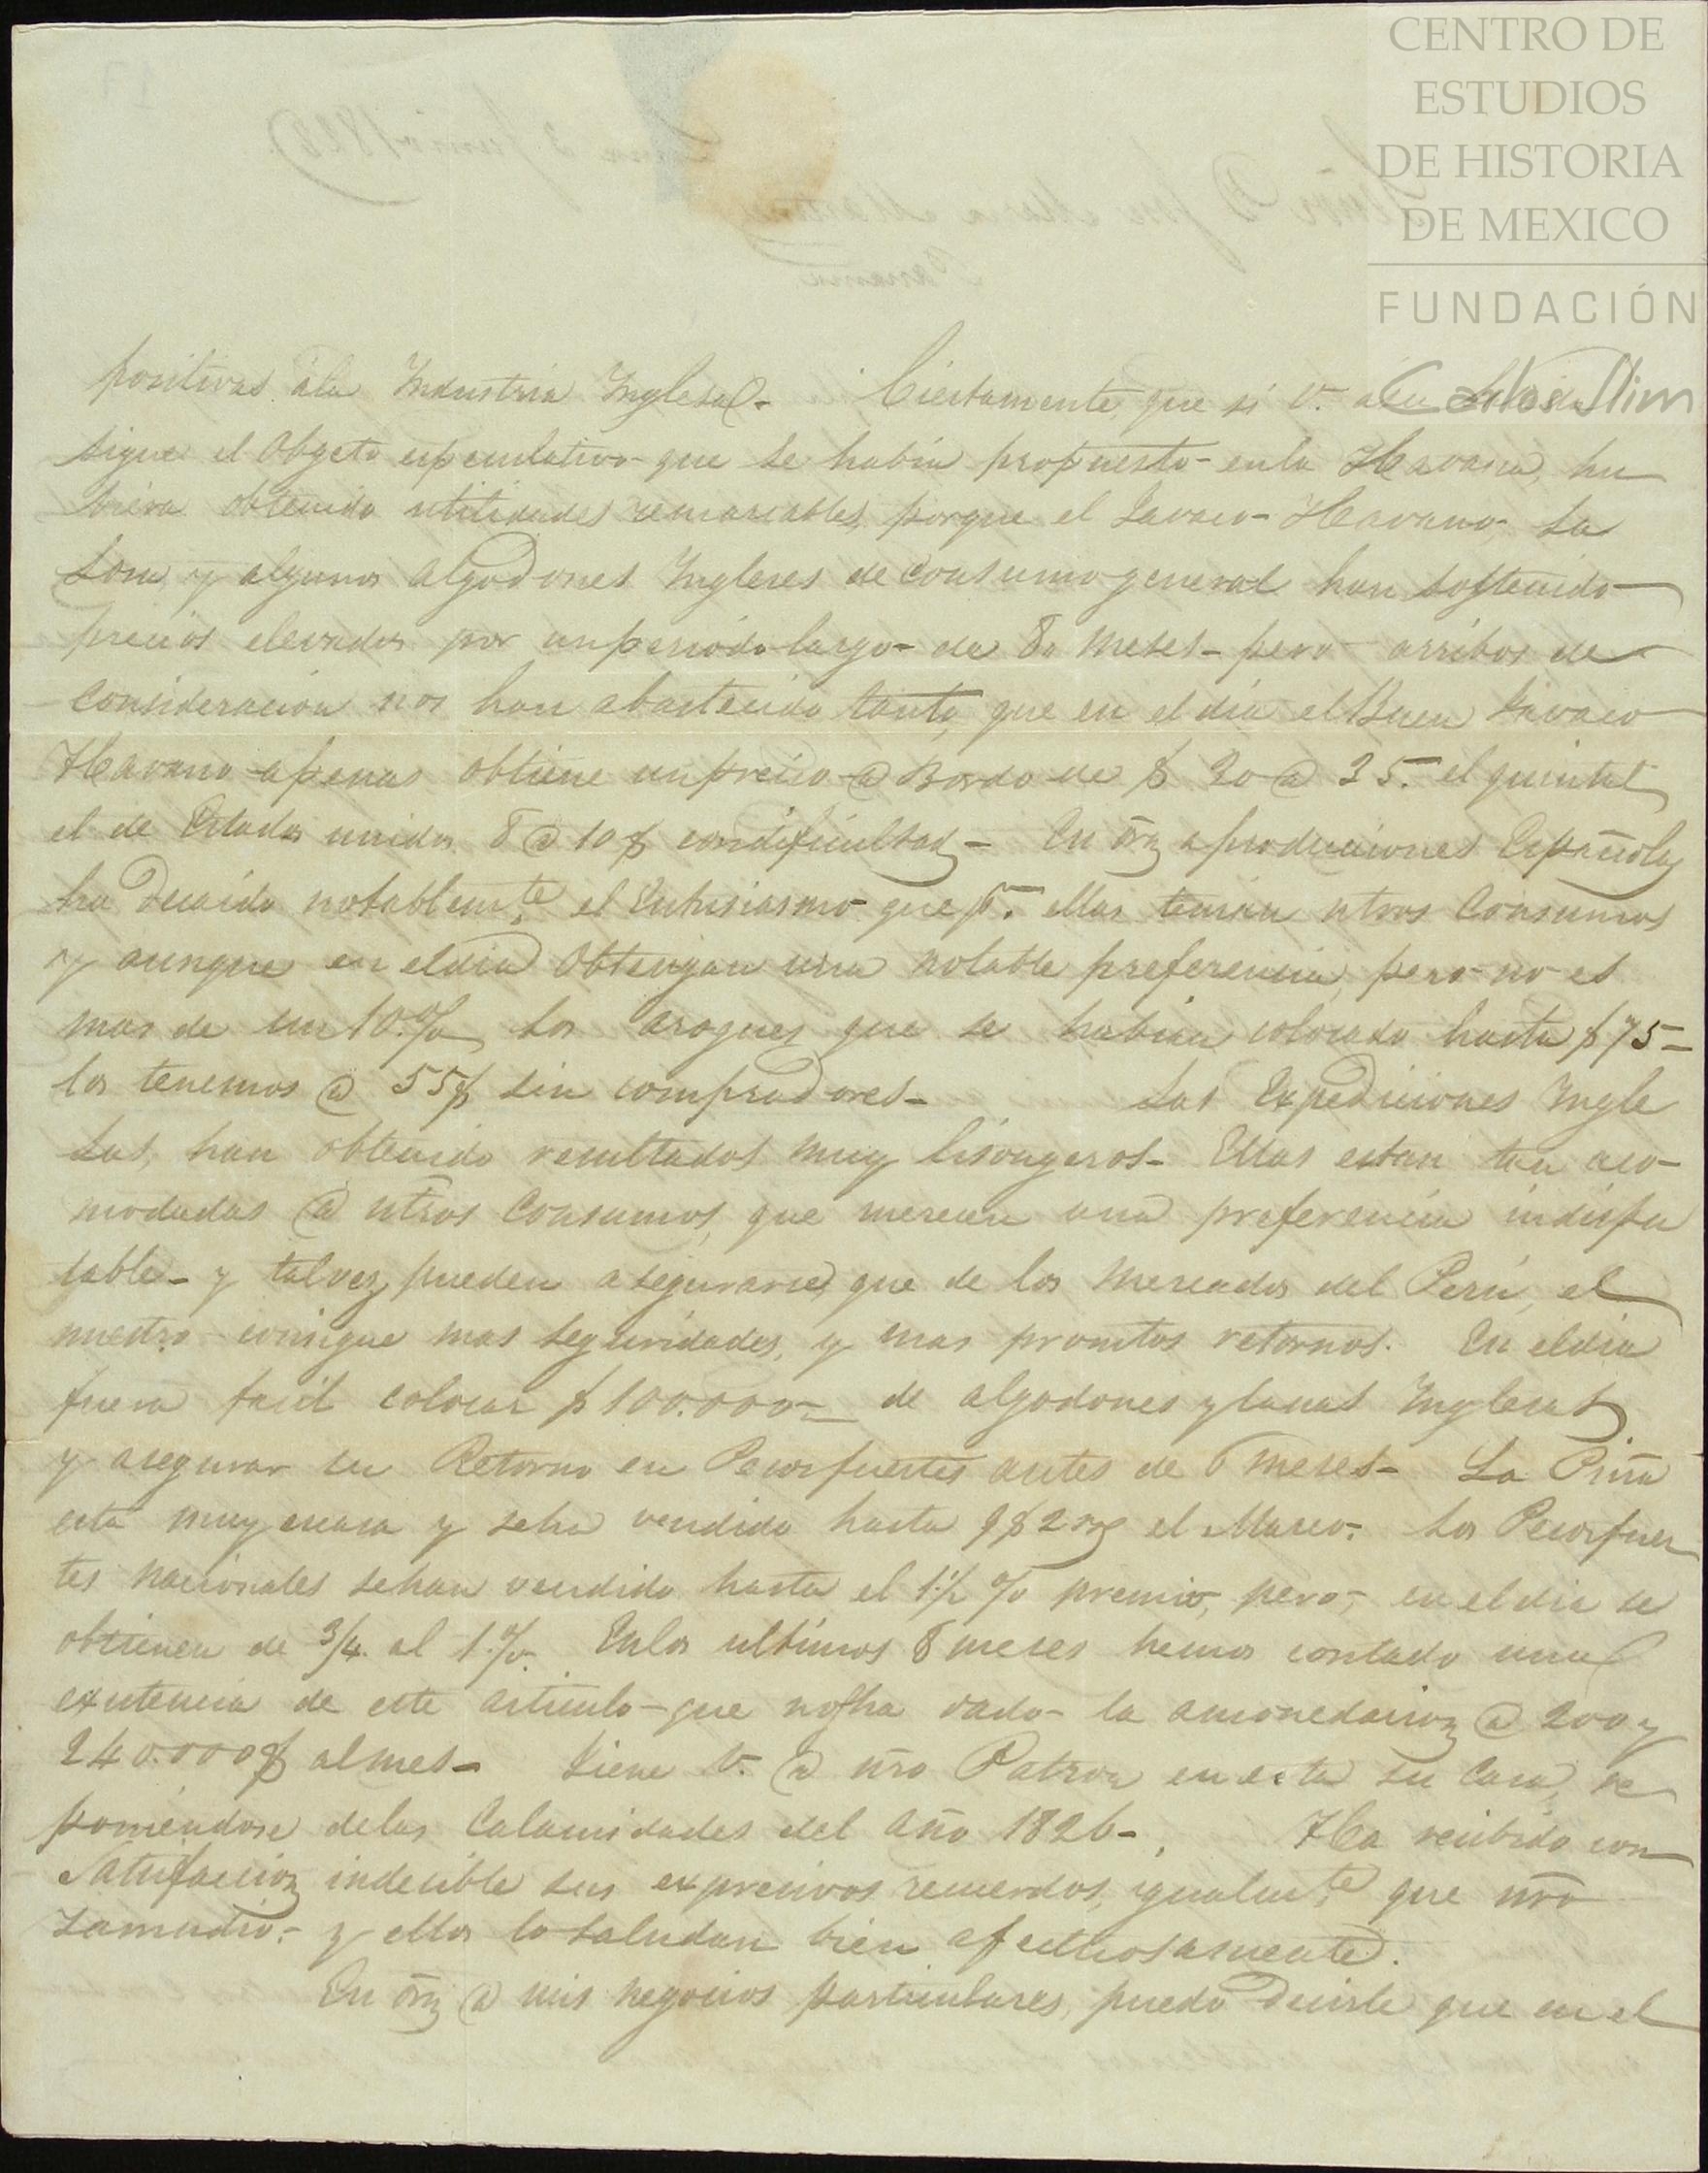 CENTRO DE
ESTUDIOS
DE HISTORIA
DE MEXICO
FUNDACIÓN
Carlos Slim
positivas ála Industria Inglesa- Ciertamente, que si V.
sigue el Obgeto especulativo que se habia propuesto- enla Havana, hu
biera obtenido utilidades remarcables, porque el Tavaco- Havano- la
Lona, y algunos algodones Ingleses de consumo general han sostenido
precios elevados por un periodo largo- de 8 meses- pero arribos de
consideracion nos han abastecido tanto, que en el dia el Buen Tavaco
Havano apenas obtiene un precio @ Bordo de $ 20 @ 25. el quintal
el de Estados unidos 8 @ 10 $ con dificultad- En orñ a producciones Españolas
ha decaido notablemte el Entusiasmo que pr. ellas tenian ntros Consumos
y aunque en el dia Obtengan una notable preferencia, pero no es
mas de un 10.% Los azogues que se habian colocado hasta $ 75-
los tenemos @ 55$ sin compradores- Las Expediciones Ingle
sas, han obtenido resultados muy lisongeros- Ellas estan tan aco-
modadas @ ntros Consumos, que merecen una preferencia indispu
table- y talvez pueden asegurarse, que de los Mercados del Perú, el
nuestro consigue mas seguridades, y mas prontos retornos. En el dia
fuera facil colocar $ 100.000- de algodones y lanas Inglesas
y asegurar su Retorno en Pesosfuertes antes de 6 meses- La Piña
está muy escasa y seha vendido hasta 9$2 rs el Marco. Los Pesosfuer
tes nacionales sehan vendido hasta el 1½ % premio, pero, en el dia se
obtienen de 3/4. al 1.%. Enlos ultimos 8 meses hemos contado una
existencia de este articulo- que nos ha dado- la amonedacion @ 200 y
240.000$ al mes- Tiene V. @ ñro Patron en esta su Casa, re
poniendose delas Calamidades del Año 1826-. Ha recibido con
Satisfaccion indecible sus expresivos recuerdos, igualmte que ñro
Zamudio- y ellos lo saludan bien afectuosamente.
En orñ @ mis negocios particulares, puedo Decirle que en el